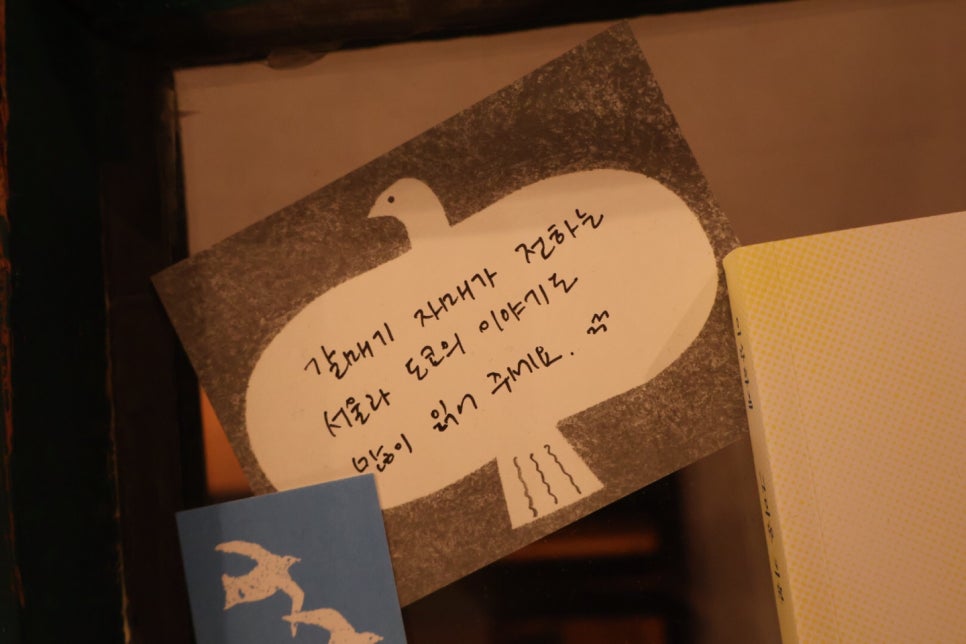 갈매기 자매가 전하는
서울과 도쿄의 이야기를
많이 읽어 주세요.